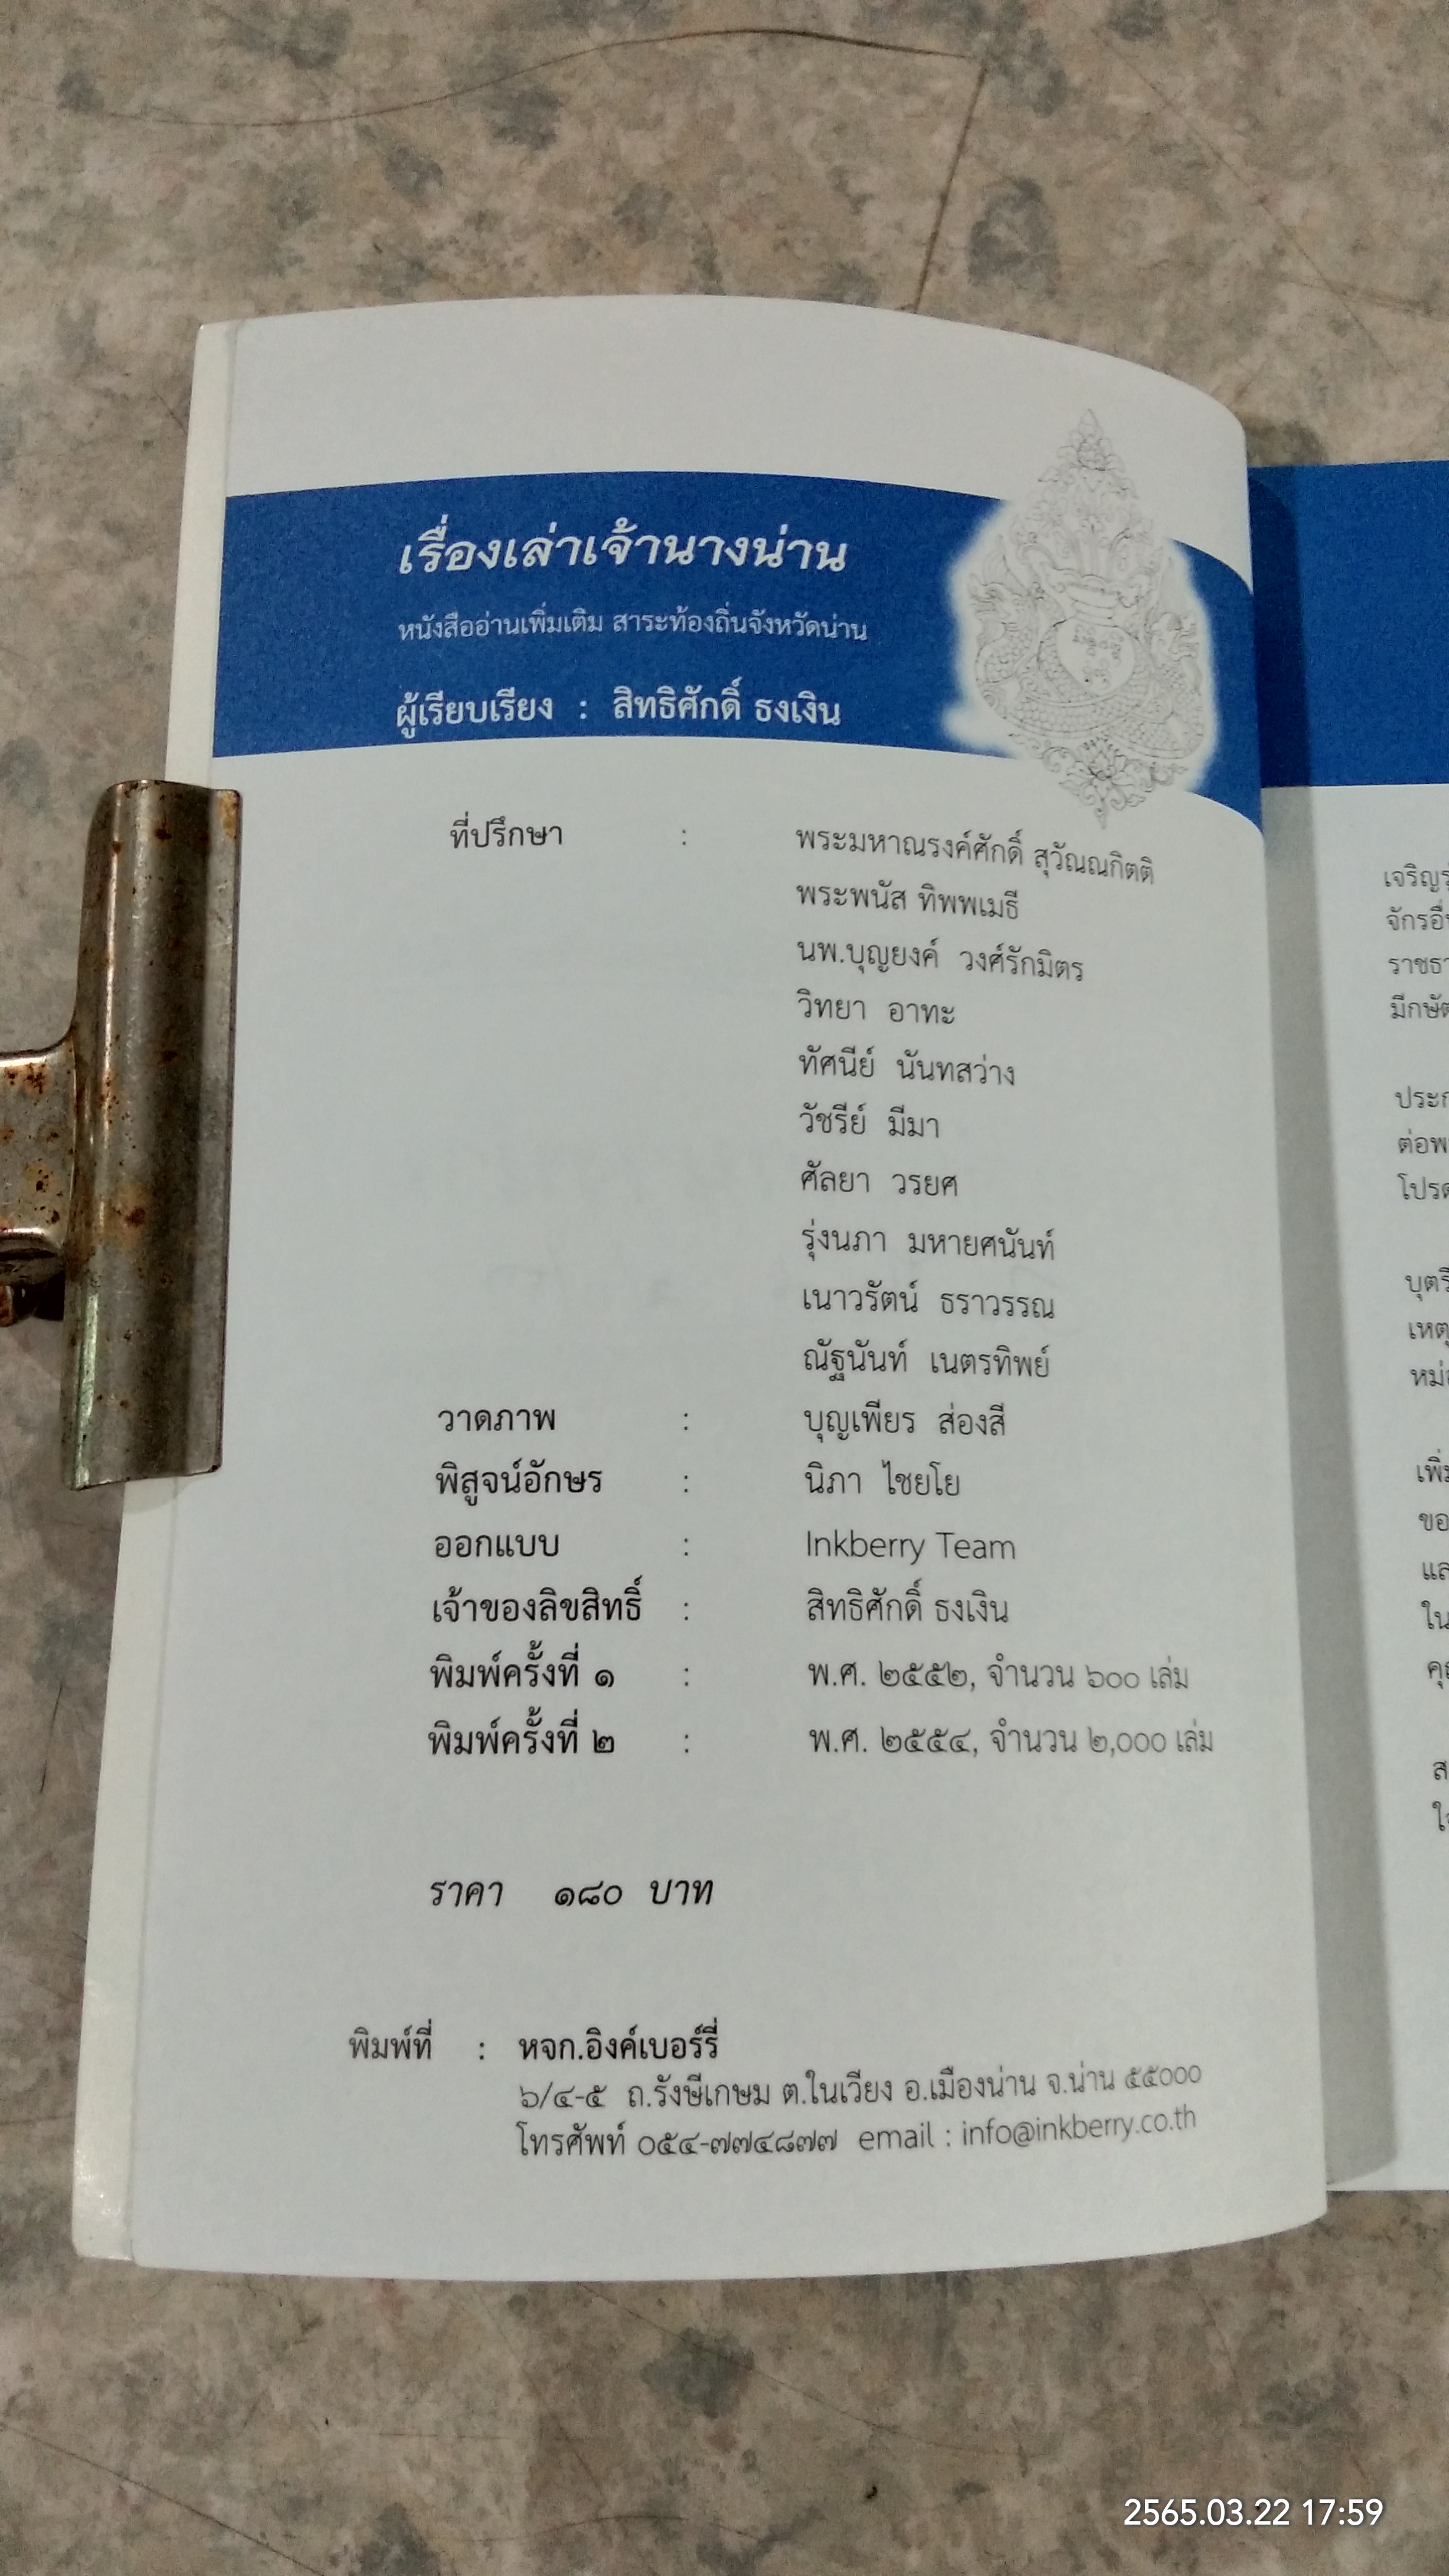 เรื่องเล่าเจ้านางน่าน
หนังสืออ่านเพิ่มเติม สาระท้องถิ่นจังหวัดน่าน
ผู้เรียบเรียง : สิทธิศักดิ์ ธงเงิน
ที่ปรึกษา : พระมหาณรงค์ศักดิ์ สุวัณณกิตติ
พระพนัส ทิพพเมธี
นพ.บุญยงค์ วงศ์รักมิตร
วิทยา อาทะ
ทัศนีย์ นันทสว่าง
วัชรีย์ มีมา
ศัลยา วรยศ
รุ่งนภา มหายศนันท์
เนาวรัตน์ ธราวรรณ
ณัฐนันท์ เนตรทิพย์
วาดภาพ : บุญเพียร ส่องสี
พิสูจน์อักษร : นิภา ไชยโย
ออกแบบ : Inkberry Team
เจ้าของลิขสิทธิ์ : สิทธิศักดิ์ ธงเงิน
พิมพ์ครั้งที่ ๑ : พ.ศ. ๒๕๕๒, จำนวน ๖๐๐ เล่ม
พิมพ์ครั้งที่ ๒ : พ.ศ. ๒๕๕๔, จำนวน ๒,๐๐๐ เล่ม
ราคา ๑๘๐ บาท
พิมพ์ที่ : หจก.อิงค์เบอร์รี่
๖/๔-๕ ถ.รังษีเกษม ต.ในเวียง อ.เมืองน่าน จ.น่าน ๕๕๐๐๐
โทรศัพท์ ๐๕๔-๗๗๔๘๗๗ email : info@inkberry.co.th
2565.03.22 17:59